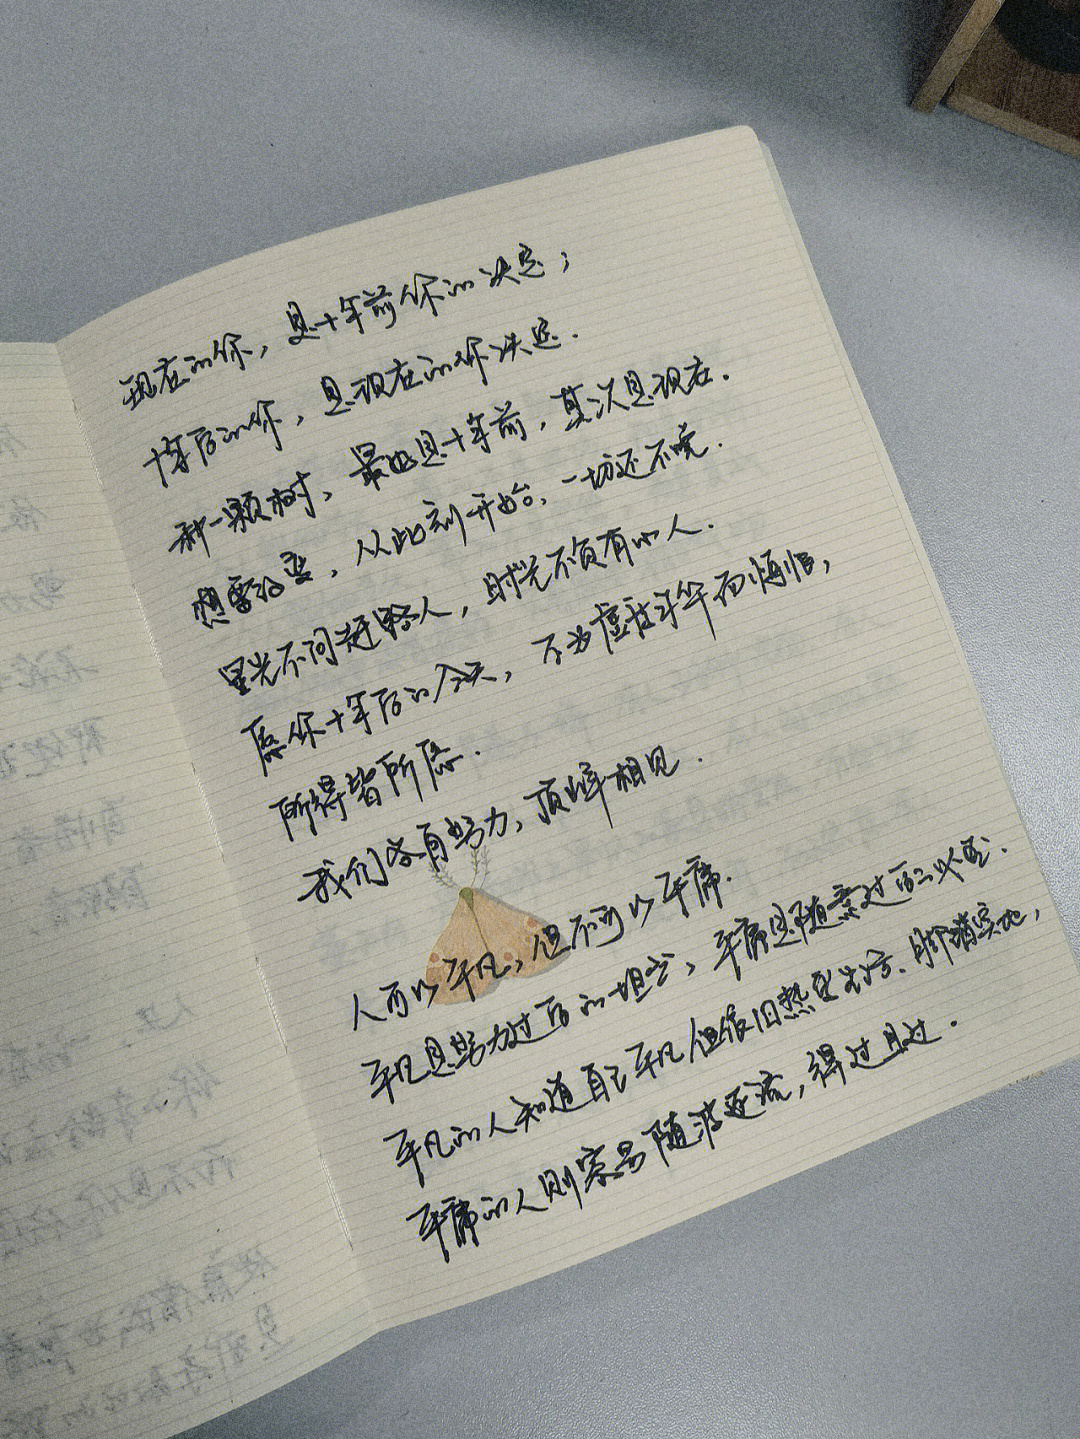 现在的你，是十年前你的决定；
十年后的你，是现在的你决定.
种一颗树，最好是十年前，其次是现在.
想要改变，从此刻开始，一切还不晚.
星光不问赶路人，时光不负有心人.
愿你十年后的今天，不为虚度年华而悔恨，
所得皆所愿.
我们各自努力，顶峰相见.
人可以平凡，但不可以平庸.
平凡是努力过后的坦然，平庸是随意过后的必然.
平凡的人知道自己平凡但依旧热爱生活、脚踏实地，
平庸的人则容易随波逐流，得过且过.